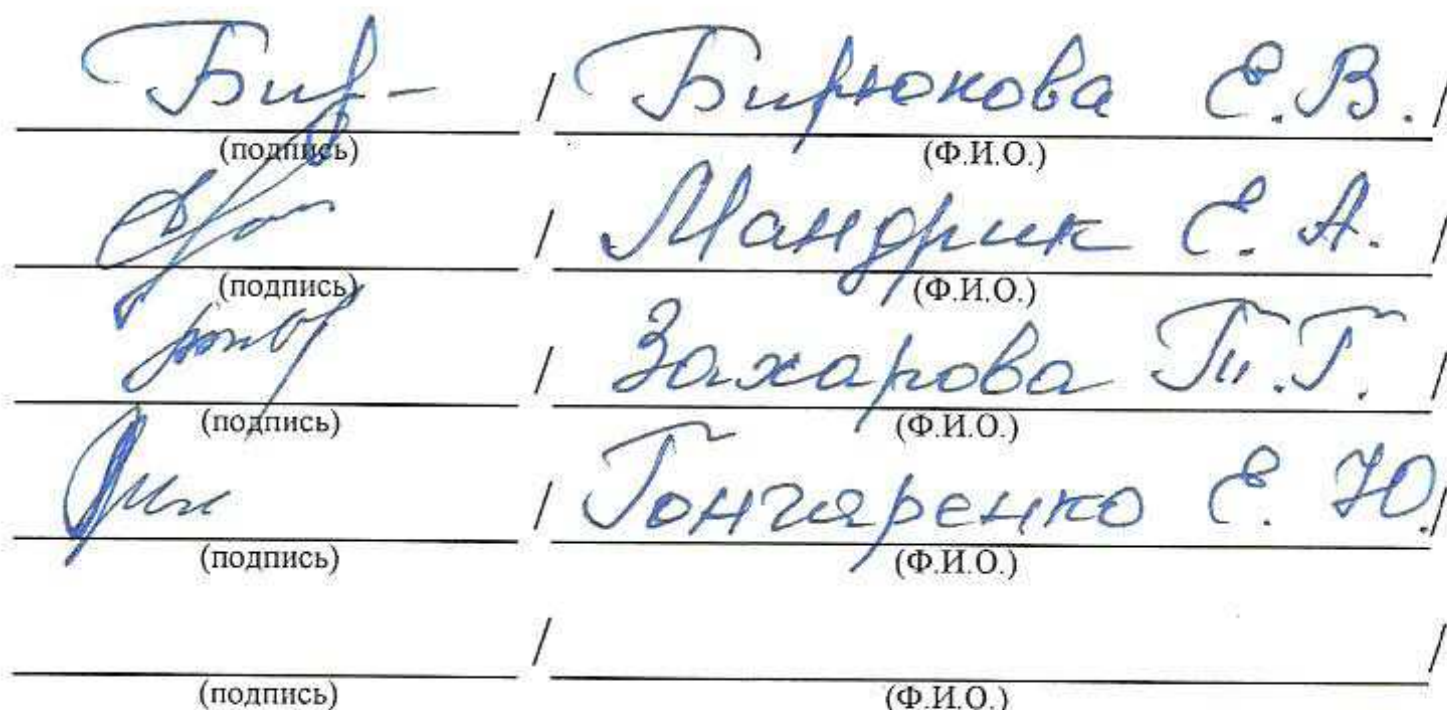 Бир- / Бирюкова Е.В. /
(подпись) (Ф.И.О.)
/ Мандрик Е. А. /
(подпись) (Ф.И.О.)
/ Захарова Т.Г. /
(подпись) (Ф.И.О.)
/ Гончаренко Е. Ю. /
(подпись) (Ф.И.О.)
/ /
(подпись) (Ф.И.О.)